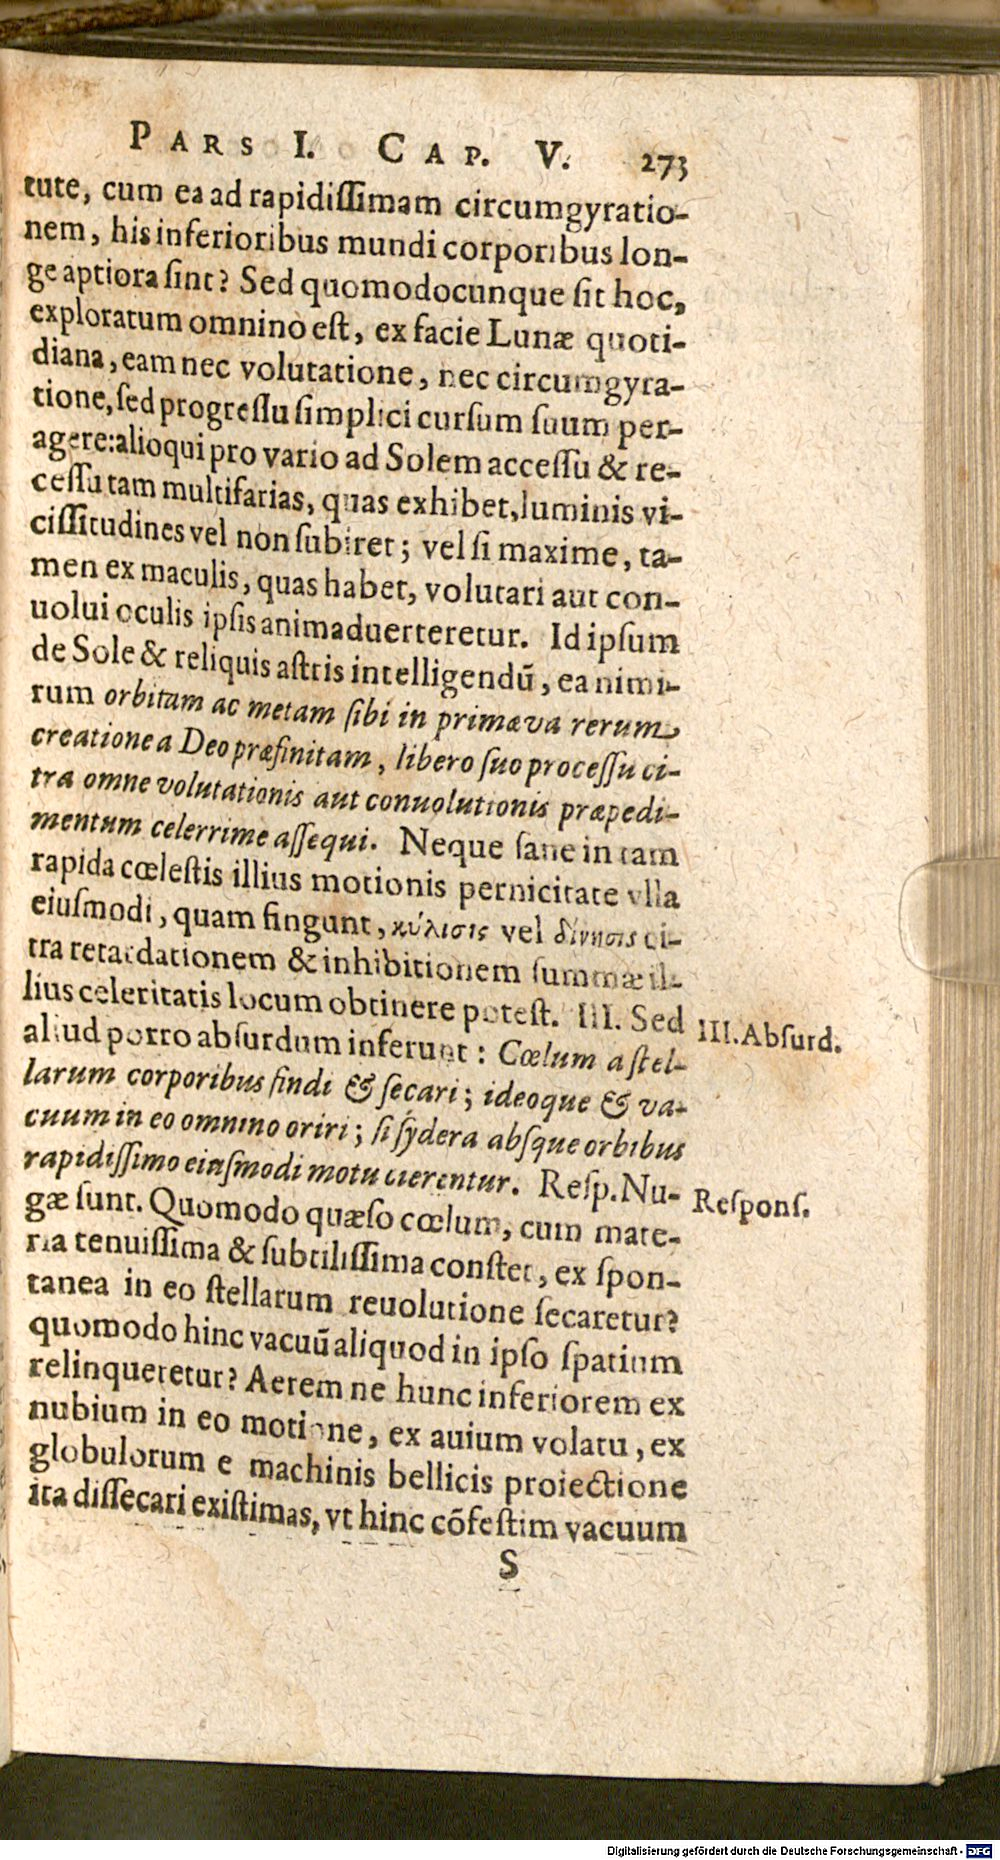 PARS I. CAP. V. 273
tute, cum ea ad rapidiſſimam circumgyratio-
nem, his inferioribus mundi corporibus lon-
ge aptiora ſint? Sed quomodocunque ſit hoc,
exploratum omnino eſt, ex facie Lunæ quoti-
diana, eam nec volutatione, nec circumgyra-
tione, ſed progreſſu ſimplici curſum ſuum per-
agere: alioqui pro vario ad Solem acceſſu & re-
ceſſu tam multifarias, quas exhibet, luminis vi-
ciſſitudines vel non ſubiret; vel ſi maxime, ta-
men ex maculis, quas habet, volutari aut con-
uolui oculis ipſis animaduerteretur. Id ipſum
de Sole & reliquis aſtris intelligendũ, ea nimi-
rum orbitam ac metam ſibi in primæva rerum
creatione a Deo præfinitam, libero ſuo proceſſu ci-
tra omne volutationis aut conuolutionis præpedi-
mentum celerrime aſſequi. Neque ſane in tam
rapida cœleſtis illius motionis pernicitate vlla
eiuſmodi, quam fingunt, κύλισις vel δίνησις ci-
tra retardationem & inhibitionem ſummæ il-
lius celeritatis locum obtinere poteſt. III. Sed
III. Abſurd.
aliud porro abſurdum inferunt: Cœlum a ſtel-
larum corporibus findi & ſecari; ideoque & va-
cuum in eo omnino oriri; ſi ſydera abſque orbibus
rapidiſſimo eiuſmodi motu cierentur. Reſp. Nu-
Reſponſ.
gæ ſunt. Quomodo quæſo cœlum, cum mate-
ria tenuiſſima & ſubtiliſſima conſtet, ex ſpon-
tanea in eo ſtellarum reuolutione ſecaretur?
quomodo hinc vacuũ aliquod in ipſo ſpatium
relinqueretur? Aerem ne hunc inferiorem ex
nubium in eo motione, ex auium volatu, ex
globulorum e machinis bellicis proiectione
ita diſſecari exiſtimas, vt hinc cõfeſtim vacuum
S
Digitalisierung gefördert durch die Deutsche Forschungsgemeinschaft - DFG